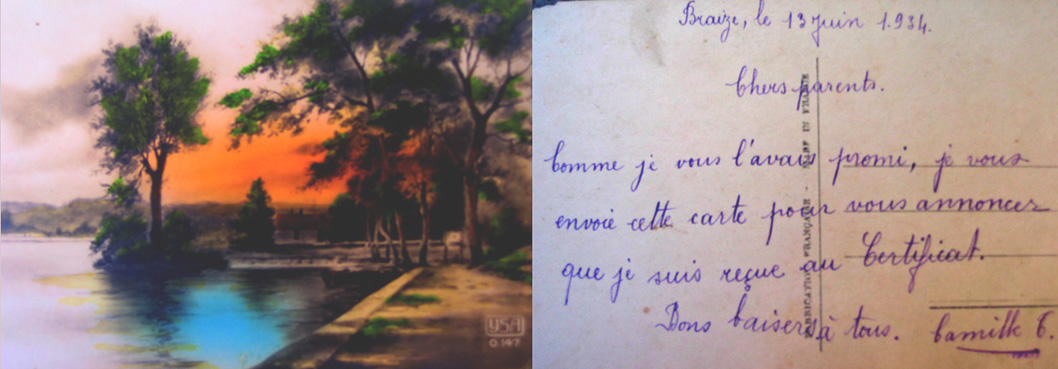 YSA
O.147
Braize, le 13 juin 1.934.
Chers parents.
Comme je vous l'avais promi, je vous
envoie cette carte pour vous annoncer
que je suis reçue au Certificat.
Bons baisers à tous. Camille C.
FABRICATION FRANÇAISE - MADE IN FRANCE